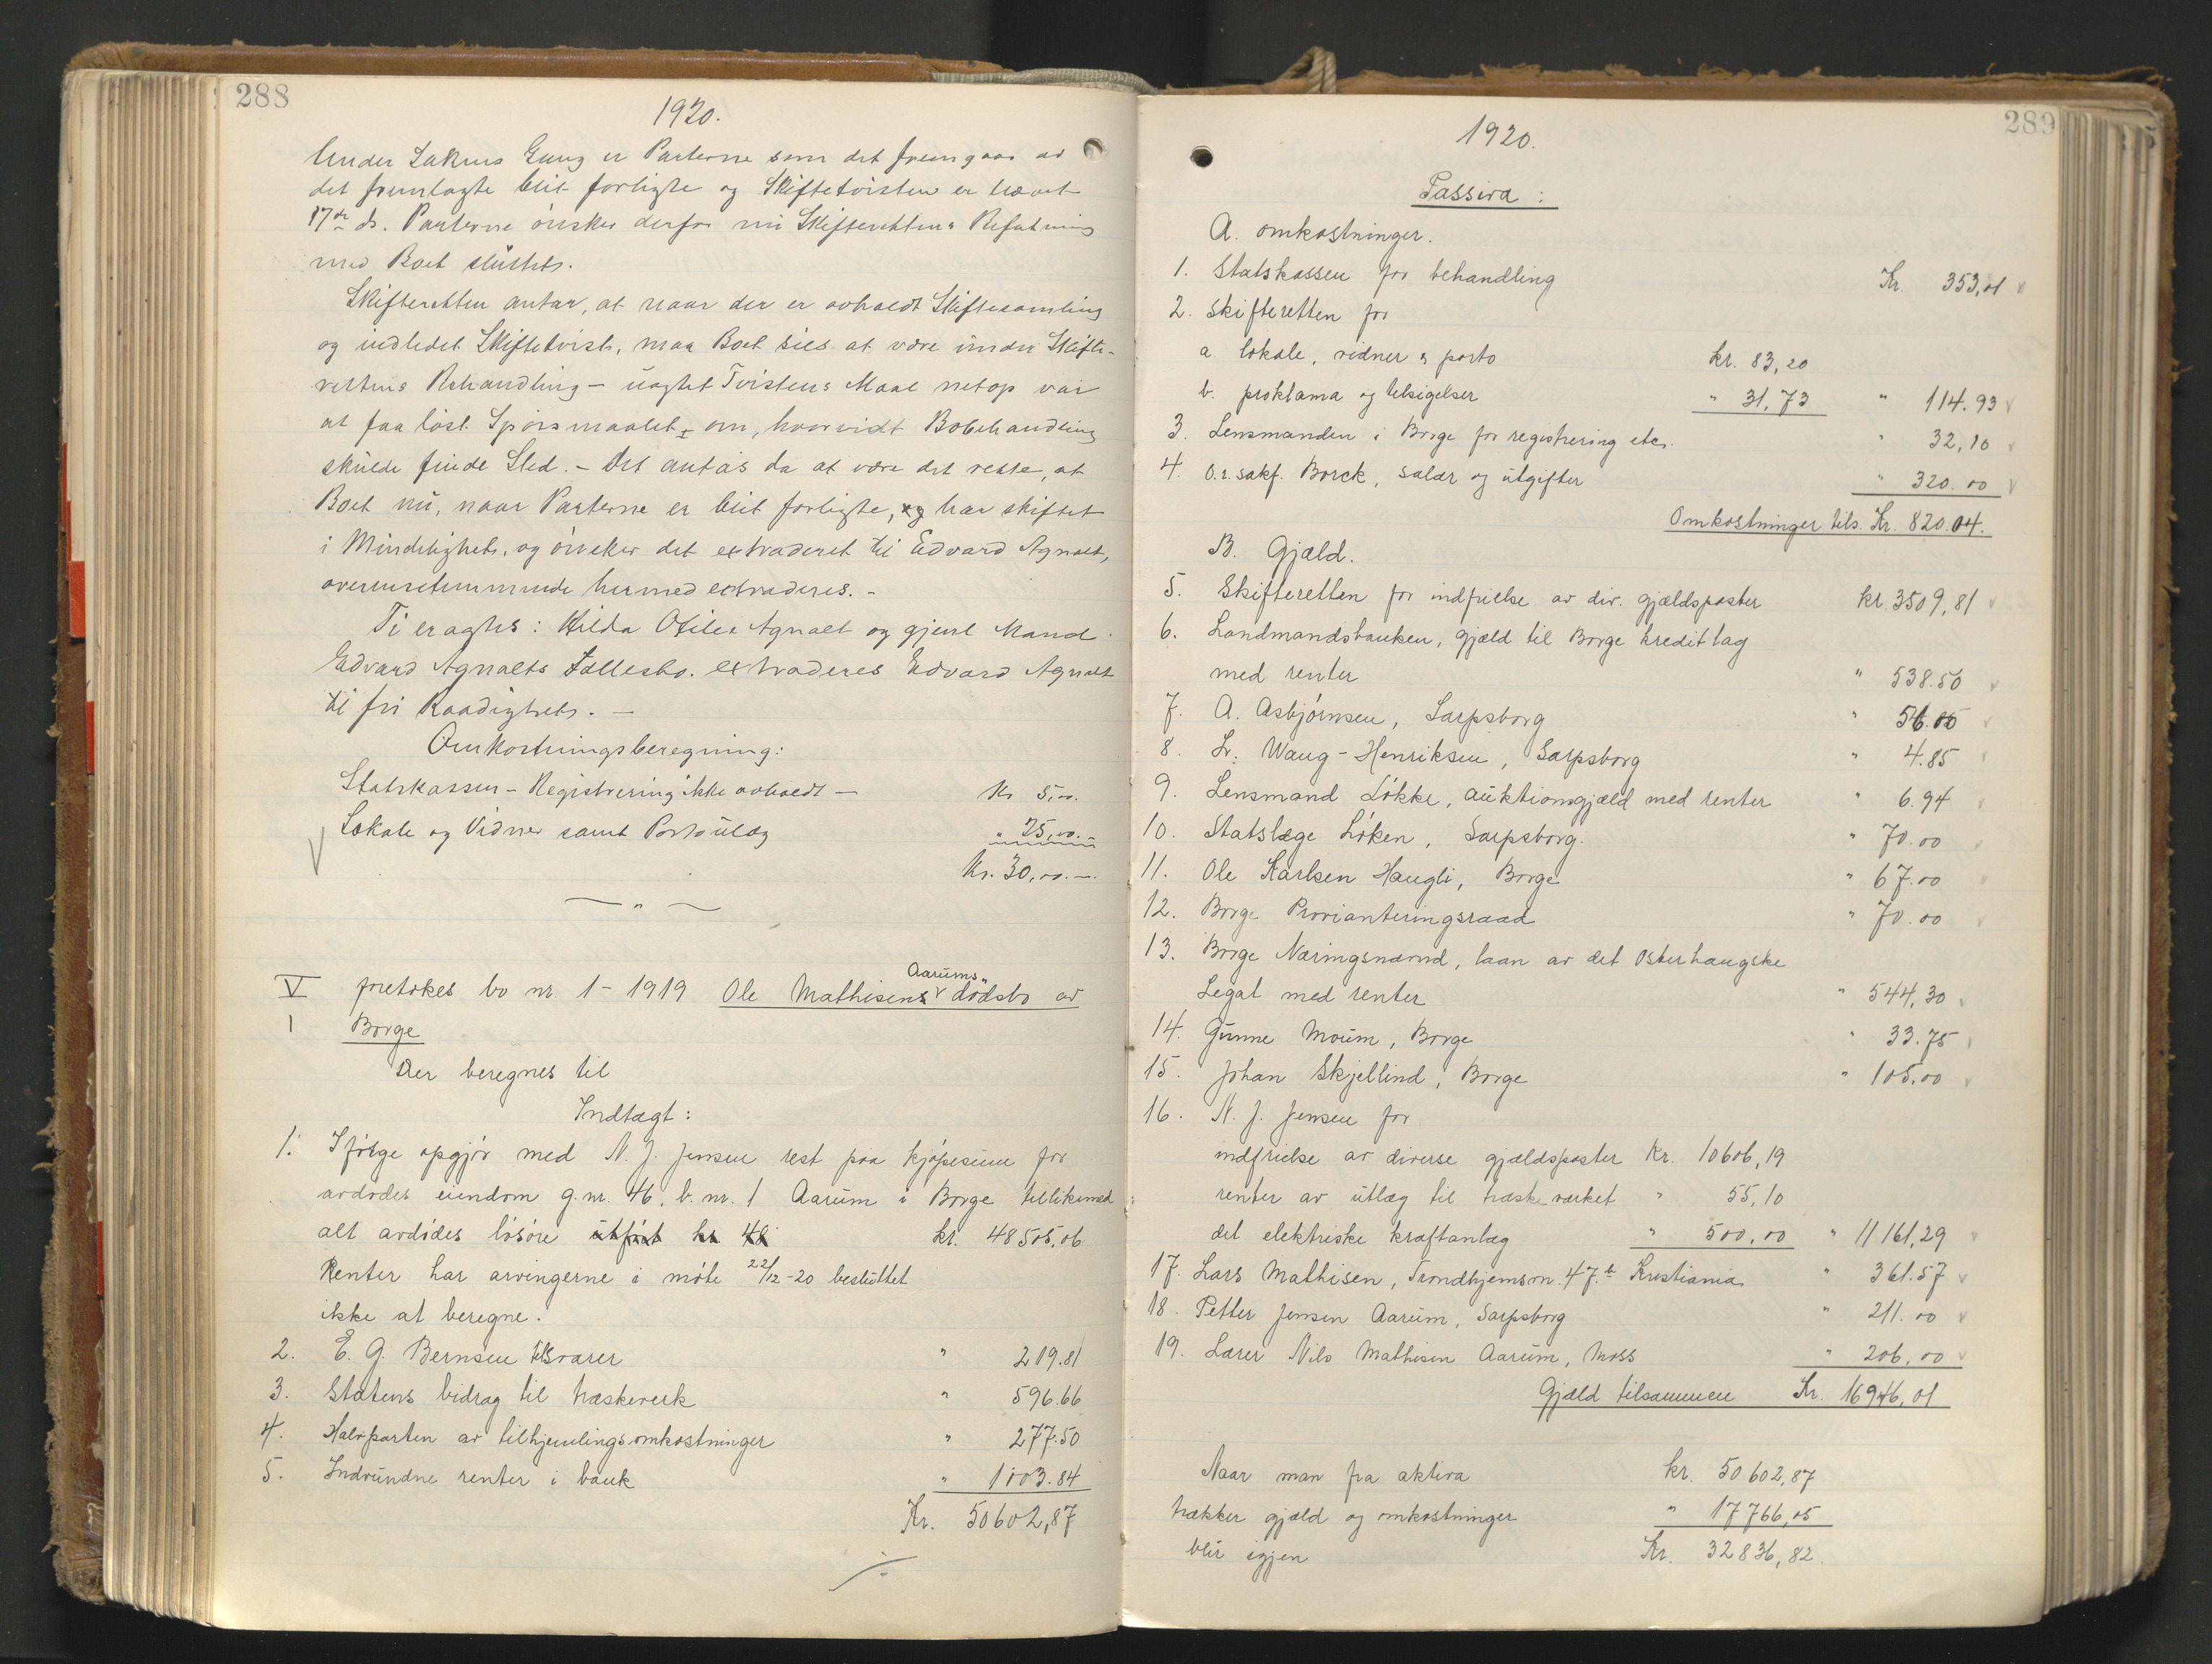 288
1920.
Under Sakens Gang er Parterne som det fremgaar av
det fremlagte blit forligte og Skiftetvisten er hævet
17de ds. Parterne ønsker derfor nu Skifterettens Befatning
med Boet sluttet.
Skifteretten antar, at naar der er avholdt Skiftesamling
og indledet Skiftetvist, maa Boet sies at være under Skifte-
rettens Behandling – uagtet Tvistens Maal netop var
at faa løst Spørsmaalet om, hvorvidt Bobehandling
skulde finde Sted. – Det antas da at være det rette, at
Boet nu, naar Parterne er blit forligte, og har skiftet
i Mindelighet, og ønsker det extraderet til Edvard Agnalt,
overensstemmende hermed extraderes. –
Ti eragtes: Hilda Otilie Agnalt og gjenl. Mand
Edvard Agnalts Fællesbo extraderes Edvard Agnalt
til fri Raadighet. –
Omkostningsberegning:
Statskassen – Registrering ikke avholdt – Kr 5,00.
Lokale og Vidner samt Portoutlæg " 25,00. –
Kr. 30,00. –
— " —
V foretokes bo nr. 1 – 1919 Ole Mathisens Aarums dødsbo av
1 Borge
Der beregnes til
Indtægt:
1. Ifølge opgjør med N. J. Jensen rest paa kjøpesum for
avdødes eiendom g.nr. 46, b.nr. 1 Aarum i Borge tillikemed
alt avdødes løsøre utført kr 48 kr. 48505,06
Renter har arvingerne i møte 22/12-20 besluttet
ikke at beregne.
2. E. G. Bernsen tilsvarer " 219.81
3. Statens bidrag til træskeverk " 596.66
4. Halvparten av tilhjemlingsomkostninger " 277.50
5. Indvundne renter i bank " 1003.84
Kr. 50602,87
289
1920.
Passiva:
A. Omkostninger.
1. Statskassen for behandling Kr. 353,01
2. Skifteretten for
a. lokale, vidner & porto kr. 83,20
b. proklama og tilsigelser " 31,73 " 114.93
3. Lensmanden i Borge for registrering etc. " 32,10
4. O.r.sakf. Borck, salær og utgifter " 320.00
Omkostninger tils. Kr. 820.04.
B. Gjæld.
5. Skifteretten for indfrielse av div. gjældsposter kr. 3509,81
6. Landmandsbanken, gjæld til Borge kredittlag
med renter " 538.50
7. A. Asbjørnsen, Sarpsborg " 56.00
8. Fr. Waug-Henriksen, Sarpsborg " 4.85
9. Lensmand Løkke, auktionsgjæld med renter " 6.94
10. Statslæge Løken, Sarpsborg. " 70.00
11. Ole Karlsen Haugli, Borge " 67.00
12. Borge Provianteringsraad " 70.00
13. Borge Næringsnævnd, laan av det Osterhaugske
Legat med renter " 544,30
14. Gunne Moum, Borge " 33.75
15. Johan Skjellind, Borge " 105,00
16. N. J. Jensen for
indfrielse av diverse gjældsposter Kr. 10606,19
renter av utlæg til træskeværket " 55,10
det elektriske kraftanlæg " 500,00 " 11161,29
17. Lars Mathisen, Trondhjemsvn. 47.b Kristiania " 361.57
18. Petter Jensen Aarum, Sarpsborg " 211.00
19. Lærer Nils Mathisen Aarum, Moss " 206,00
Gjæld tilsammen Kr. 16946,01
Naar man fra aktiva kr. 50602,87
trækker gjæld og omkostninger " 17766,05
blir igjen Kr. 32836,82.